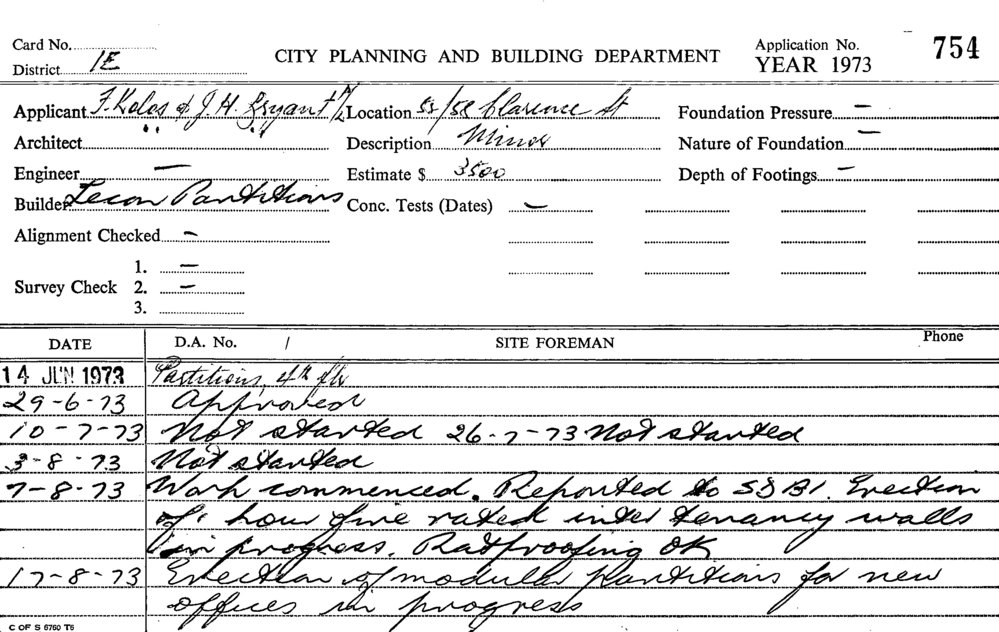 Card No. CITY PLANNING AND BUILDING DEPARTMENT Application No. 754
District 1E YEAR 1973
Applicant F. Kolos of J. H. Bryant Location 52/58 Clarence St Foundation Pressure –
Architect " " Description Minor Nature of Foundation –
Engineer – Estimate $ 3500 Depth of Footings –
Builder Lecon Partitions Conc. Tests (Dates) –
Alignment Checked –
1. –
Survey Check 2. –
3.
DATE D.A. No. / SITE FOREMAN Phone
14 JUN 1973 Partitions, 4th flr
29-6-73 Approved
10-7-73 Not started 26-7-73 Not started
3-8-73 Not started
7-8-73 Work commenced. Reported to SDBI. Erection
of 1 hour fire rated inter tenancy walls
in progress. Ratproofing OK
17-8-73 Erection of modular partitions for new
offices in progress
C OF S 6760 T6